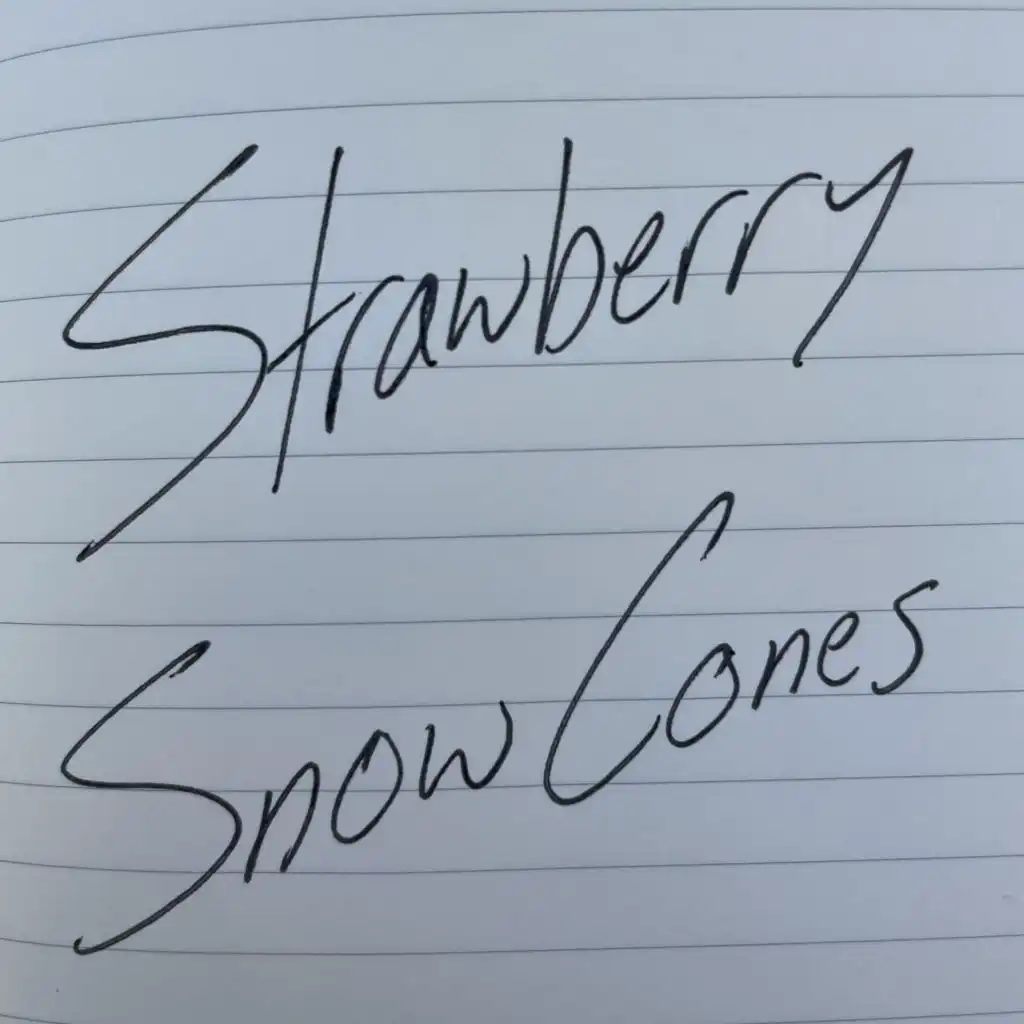 Strawberry
Snow Cones